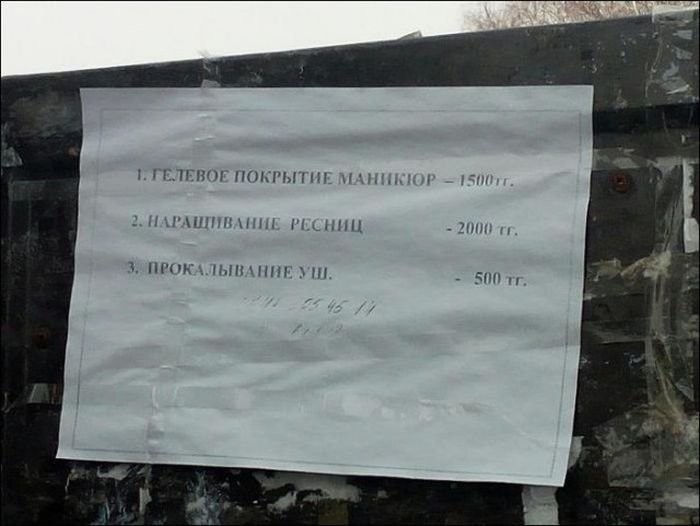 1. ГЕЛЕВОЕ ПОКРЫТИЕ МАНИКЮР – 1500тг.
2. НАРАЩИВАНИЕ РЕСНИЦ - 2000 тг.
3. ПРОКАЛЫВАНИЕ УШ. - 500 тг.